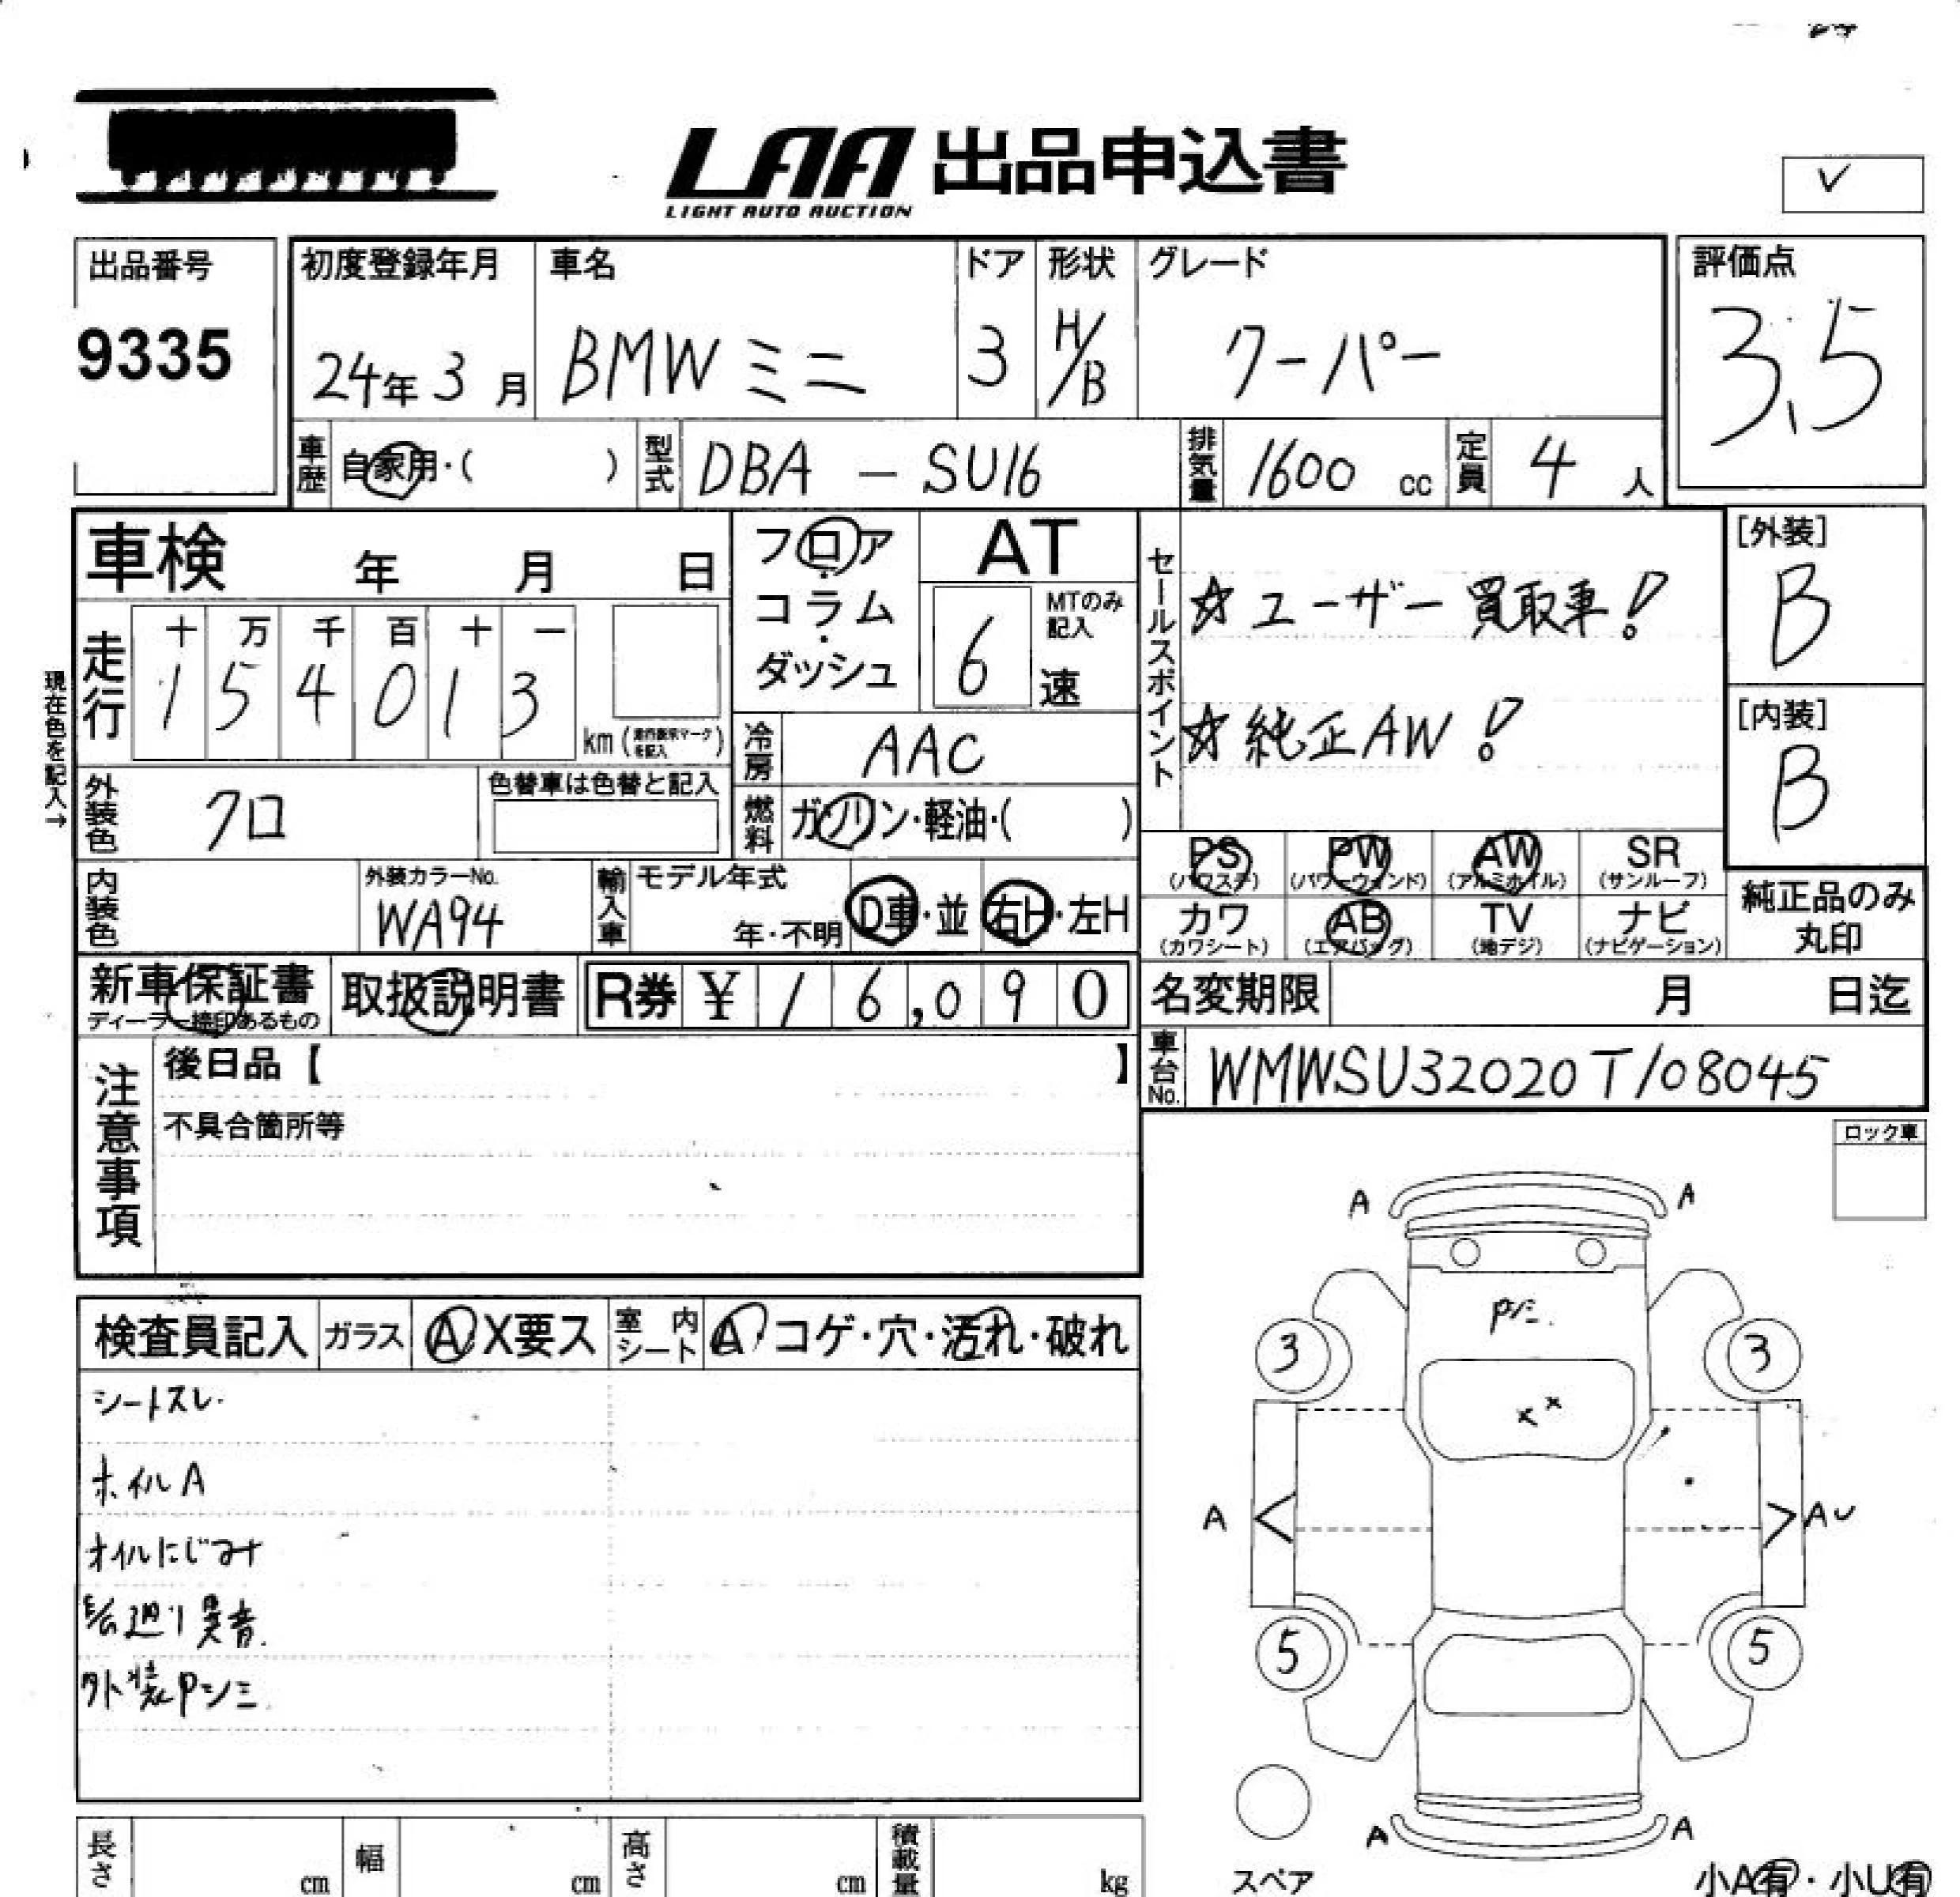 LAA 出品申込書
LIGHT AUTO AUCTION
✓
出品番号
9335
初度登録年月
24年 3月
車名
BMWミニ
ドア
3
形状
H/B
グレード
クーパー
評価点
3.5
車歴
自家用・( )
型式
DBA - SU16
排気量
1600 cc
定員
4 人
車検 年 月 日
フロア・コラム・ダッシュ
AT
6
MTのみ記入
速
セールスポイント
☆ユーザー買取車!
☆純正AW!
[外装]
B
[内装]
B
現在色を記入→
走行
十 万 千 百 十 一
1 5 4 0 1 3
km
冷房
AAC
外装色
クロ
色替車は色替と記入
燃料
ガソリン・軽油・( )
PS (パワステ)
PW (パワーウィンド)
AW (アルミホイル)
SR (サンルーフ)
カワ (カワシート)
AB (エアバッグ)
TV (地デジ)
ナビ (ナビゲーション)
純正品のみ丸印
内装色
外装カラーNo.
WA94
輸入車
モデル年式
年・不明
D車・並
右H・左H
新車保証書
ディーラー捺印あるもの
取扱説明書
R券 ¥ 16,090
名変期限 月 日迄
車台No.
WMWSU32020T108045
注意事項
後日品【 】
不具合箇所等
ロック車
検査員記入
ガラス
A X要ス
室内シート
A コゲ・穴・汚れ・破れ
シートスレ
ホイルA
オイルにじみ
E/G廻り異音
外装Pシミ
A A
Pシミ
3 3
X X
A AU
5 5
A A
スペア
小A有・小U有
長さ cm
幅 cm
高さ cm
積載量 kg